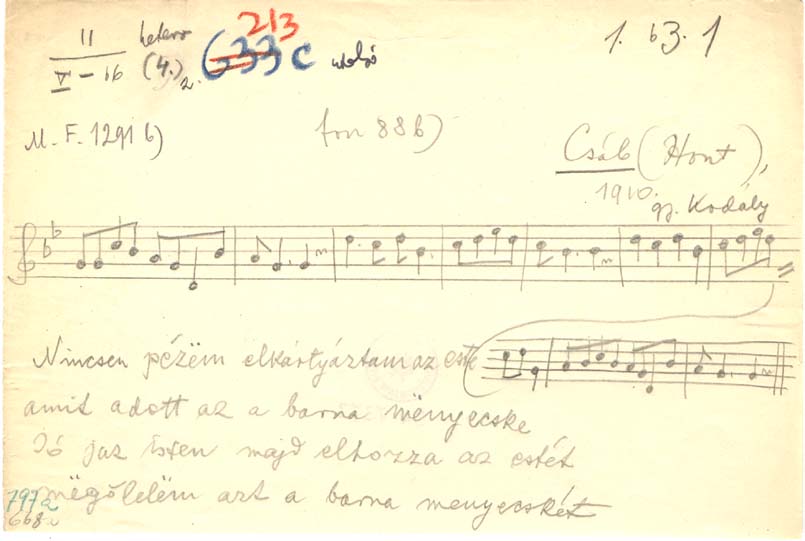 II hetero 213
V-16 (4.) 2. 633 c utolsó 1. b3. 1
M. F. 1291 b) fon 88b)
Csáb (Hont),
1910.
gy. Kodály
Nincsen pézëm elkártyáztam az este
amit adott az a barna mënyecske
Jó jaz Isten majd elhozza az estét
mëgölelëm azt a barna menyecskét
797a
668